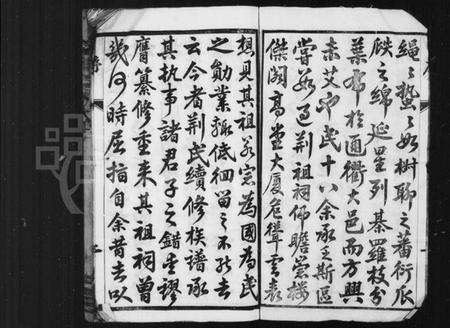 繩之蟄之如樹聊之蕃衍瓜
瓞之綿延星列棊羅枝分
葉布於通衢大邑而方興
未艾也民十八余承乏斯區
嘗過荆祖祠仰瞻崇樓
傑閣高堂大廈危聳雲表
想見其祖若宗為國為民
之勛業輒低徊留之不能去
云今者荆氏續修族譜承
其執事諸君子之錯委謬
膺纂修重來其祖祠曾
幾何時屈指自余昔去以